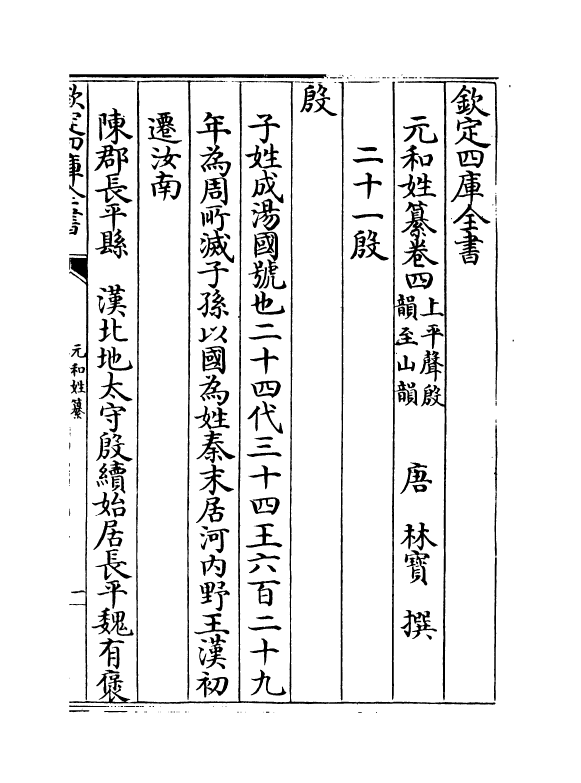 欽定四庫全書
元和姓纂卷四上平聲殷韻至山韻 唐 林寶 撰
二十一殷
殷
子姓成湯國號也二十四代三十四王六百二十九
年為周所滅子孫以國為姓秦末居河内野王漢初
遷汝南
陳郡長平縣 漢北地太守殷續始居長平魏有褒
欽定四庫全書
元和姓纂
一